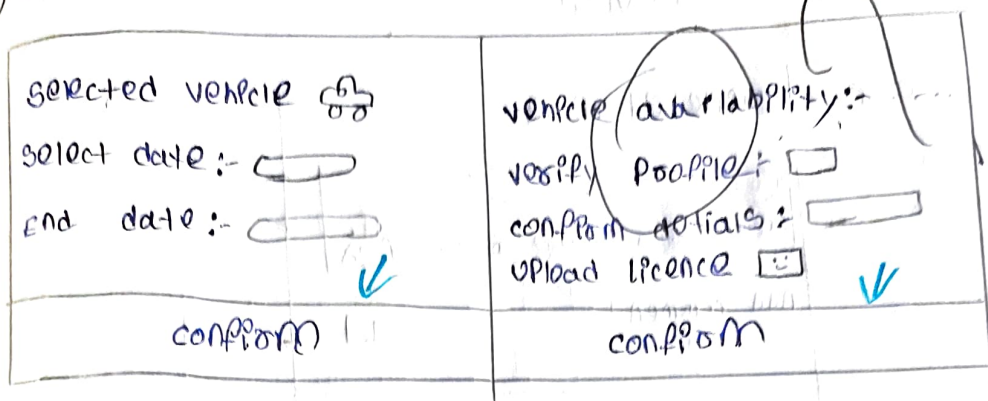 selected vehicle
select date :-
End date :-
confirm
vehicle availability :-
verify profile :-
confirm detials :-
upload licence
confirm